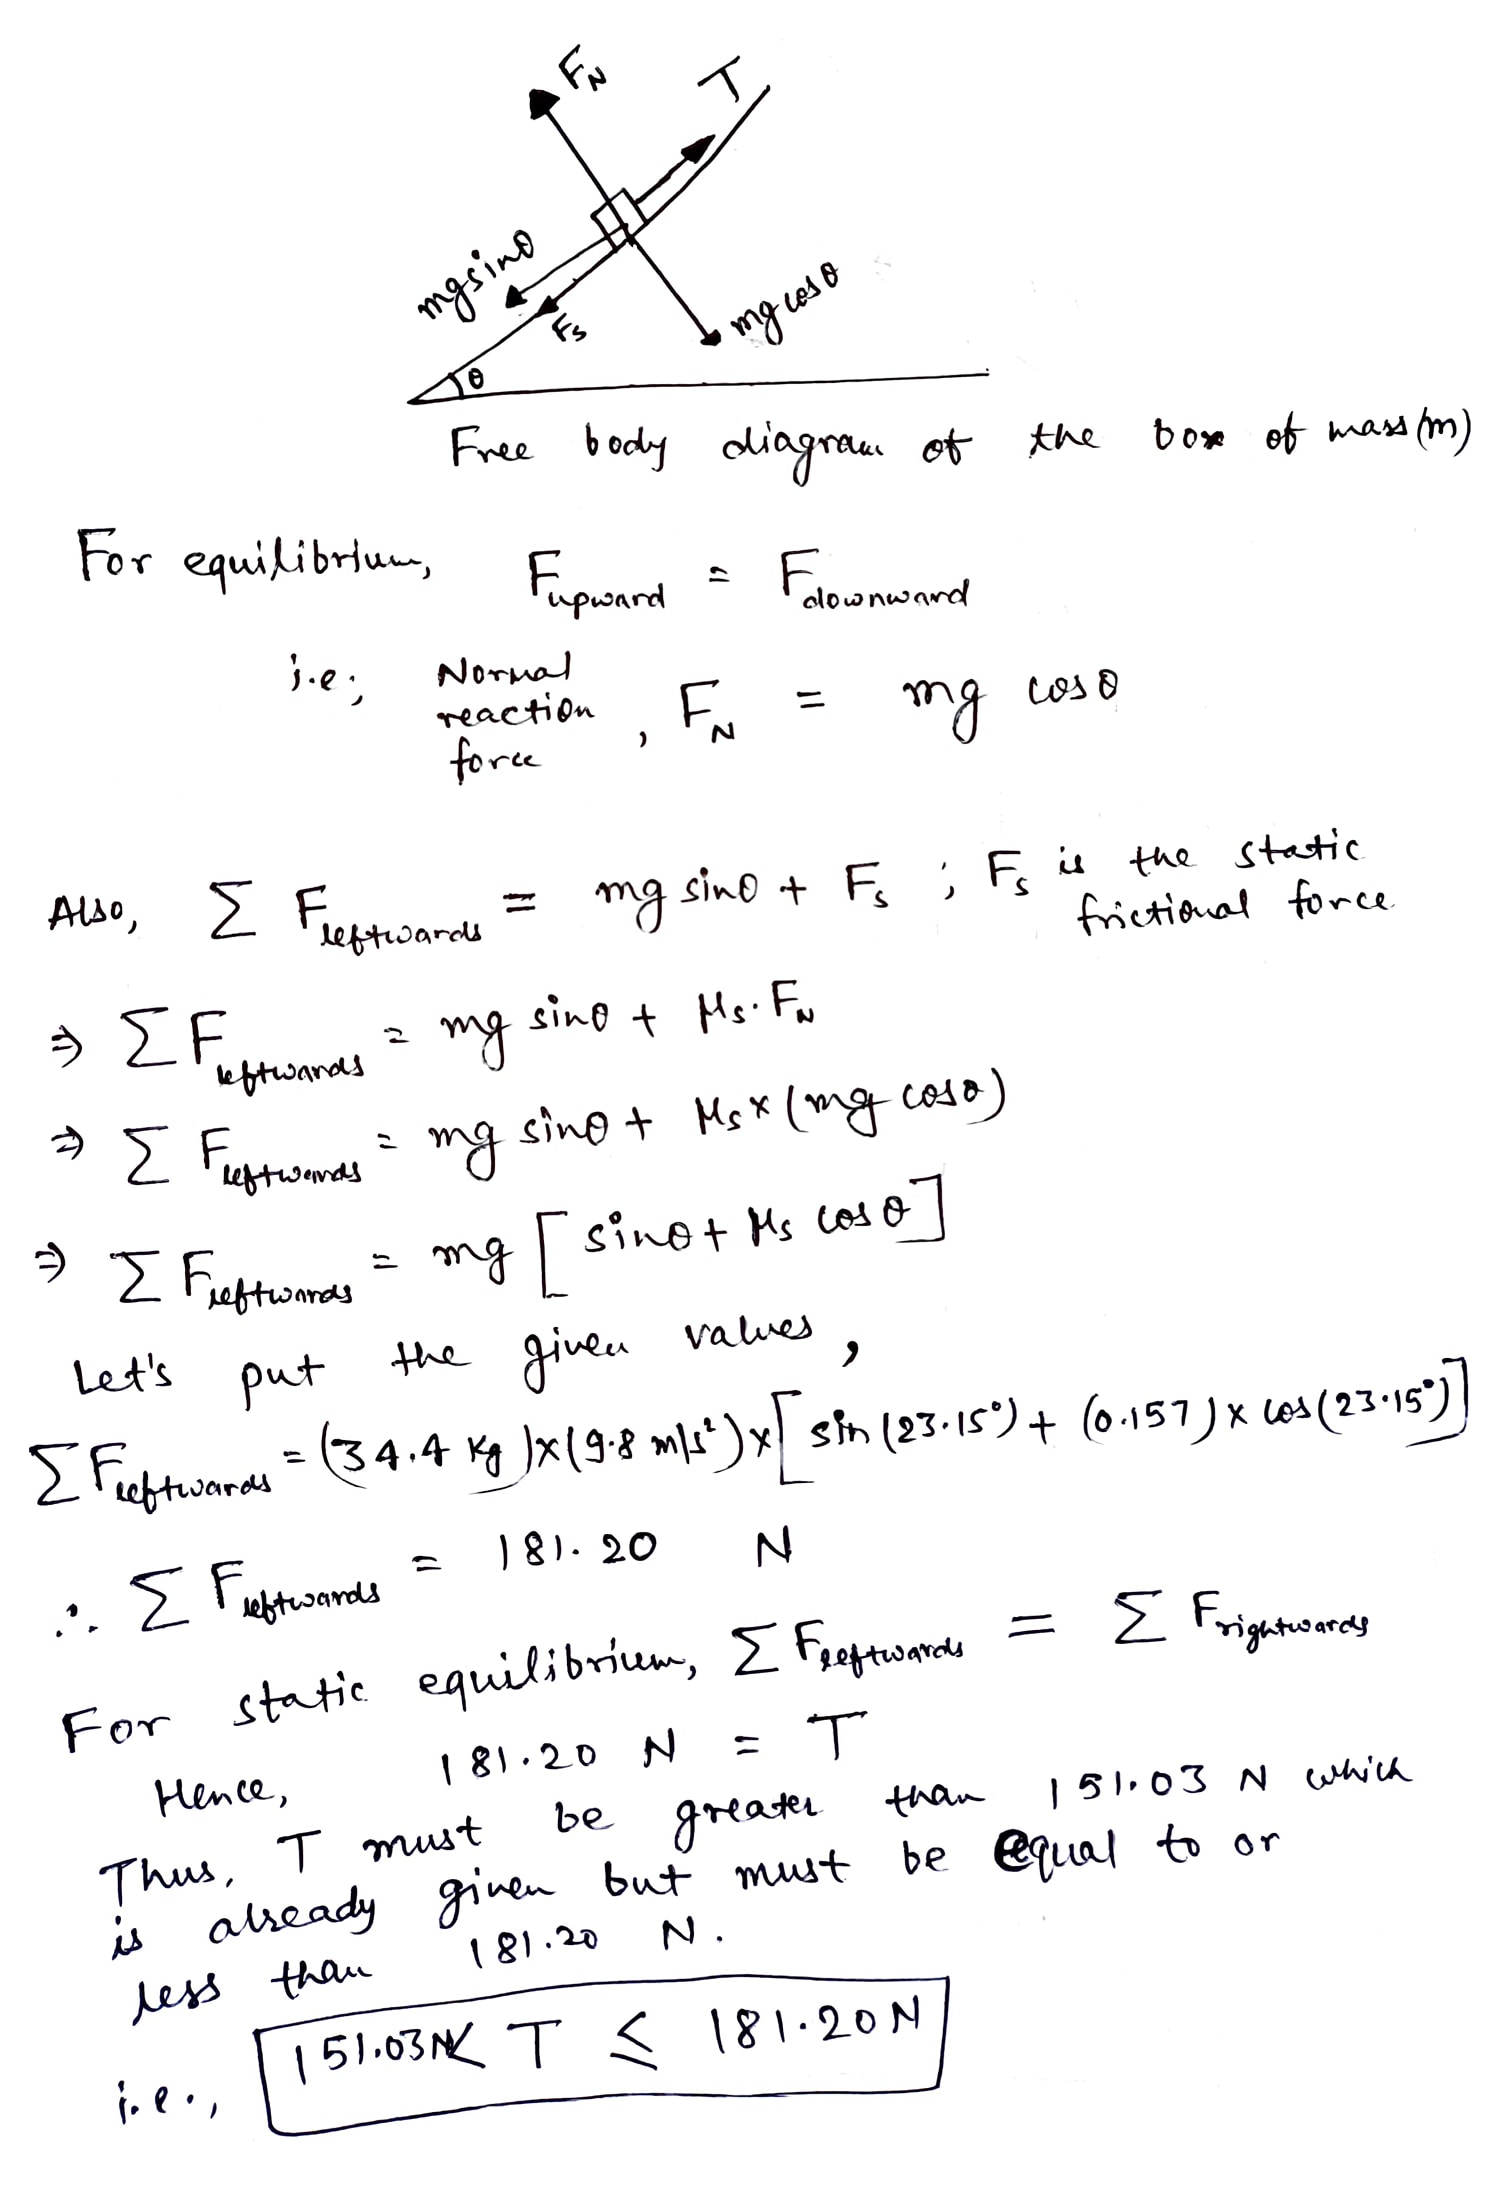 F_N
T
mg sinθ
F_s
mg cosθ
θ
Free body diagram of the box of mass (m)
For equilibrium, F_upward = F_downward
i.e; Normal reaction force, F_N = mg cosθ
Also, Σ F_leftwards = mg sinθ + F_s ; F_s is the static frictional force
⇒ Σ F_leftwards = mg sinθ + μ_s. F_N
⇒ Σ F_leftwards = mg sinθ + μ_s × (mg cosθ)
⇒ Σ F_leftwards = mg [sinθ + μ_s cosθ]
Let's put the given values,
Σ F_leftwards = (34.4 kg) × (9.8 m/s²) × [sin (23.15°) + (0.157) × cos (23.15°)]
∴ Σ F_leftwards = 181.20 N
For static equilibrium, Σ F_leftwards = Σ F_rightwards
Hence, 181.20 N = T
Thus, T must be greater than 151.03 N which
is already given but must be equal to or
less than 181.20 N.
i.e., 151.03N < T ≤ 181.20N